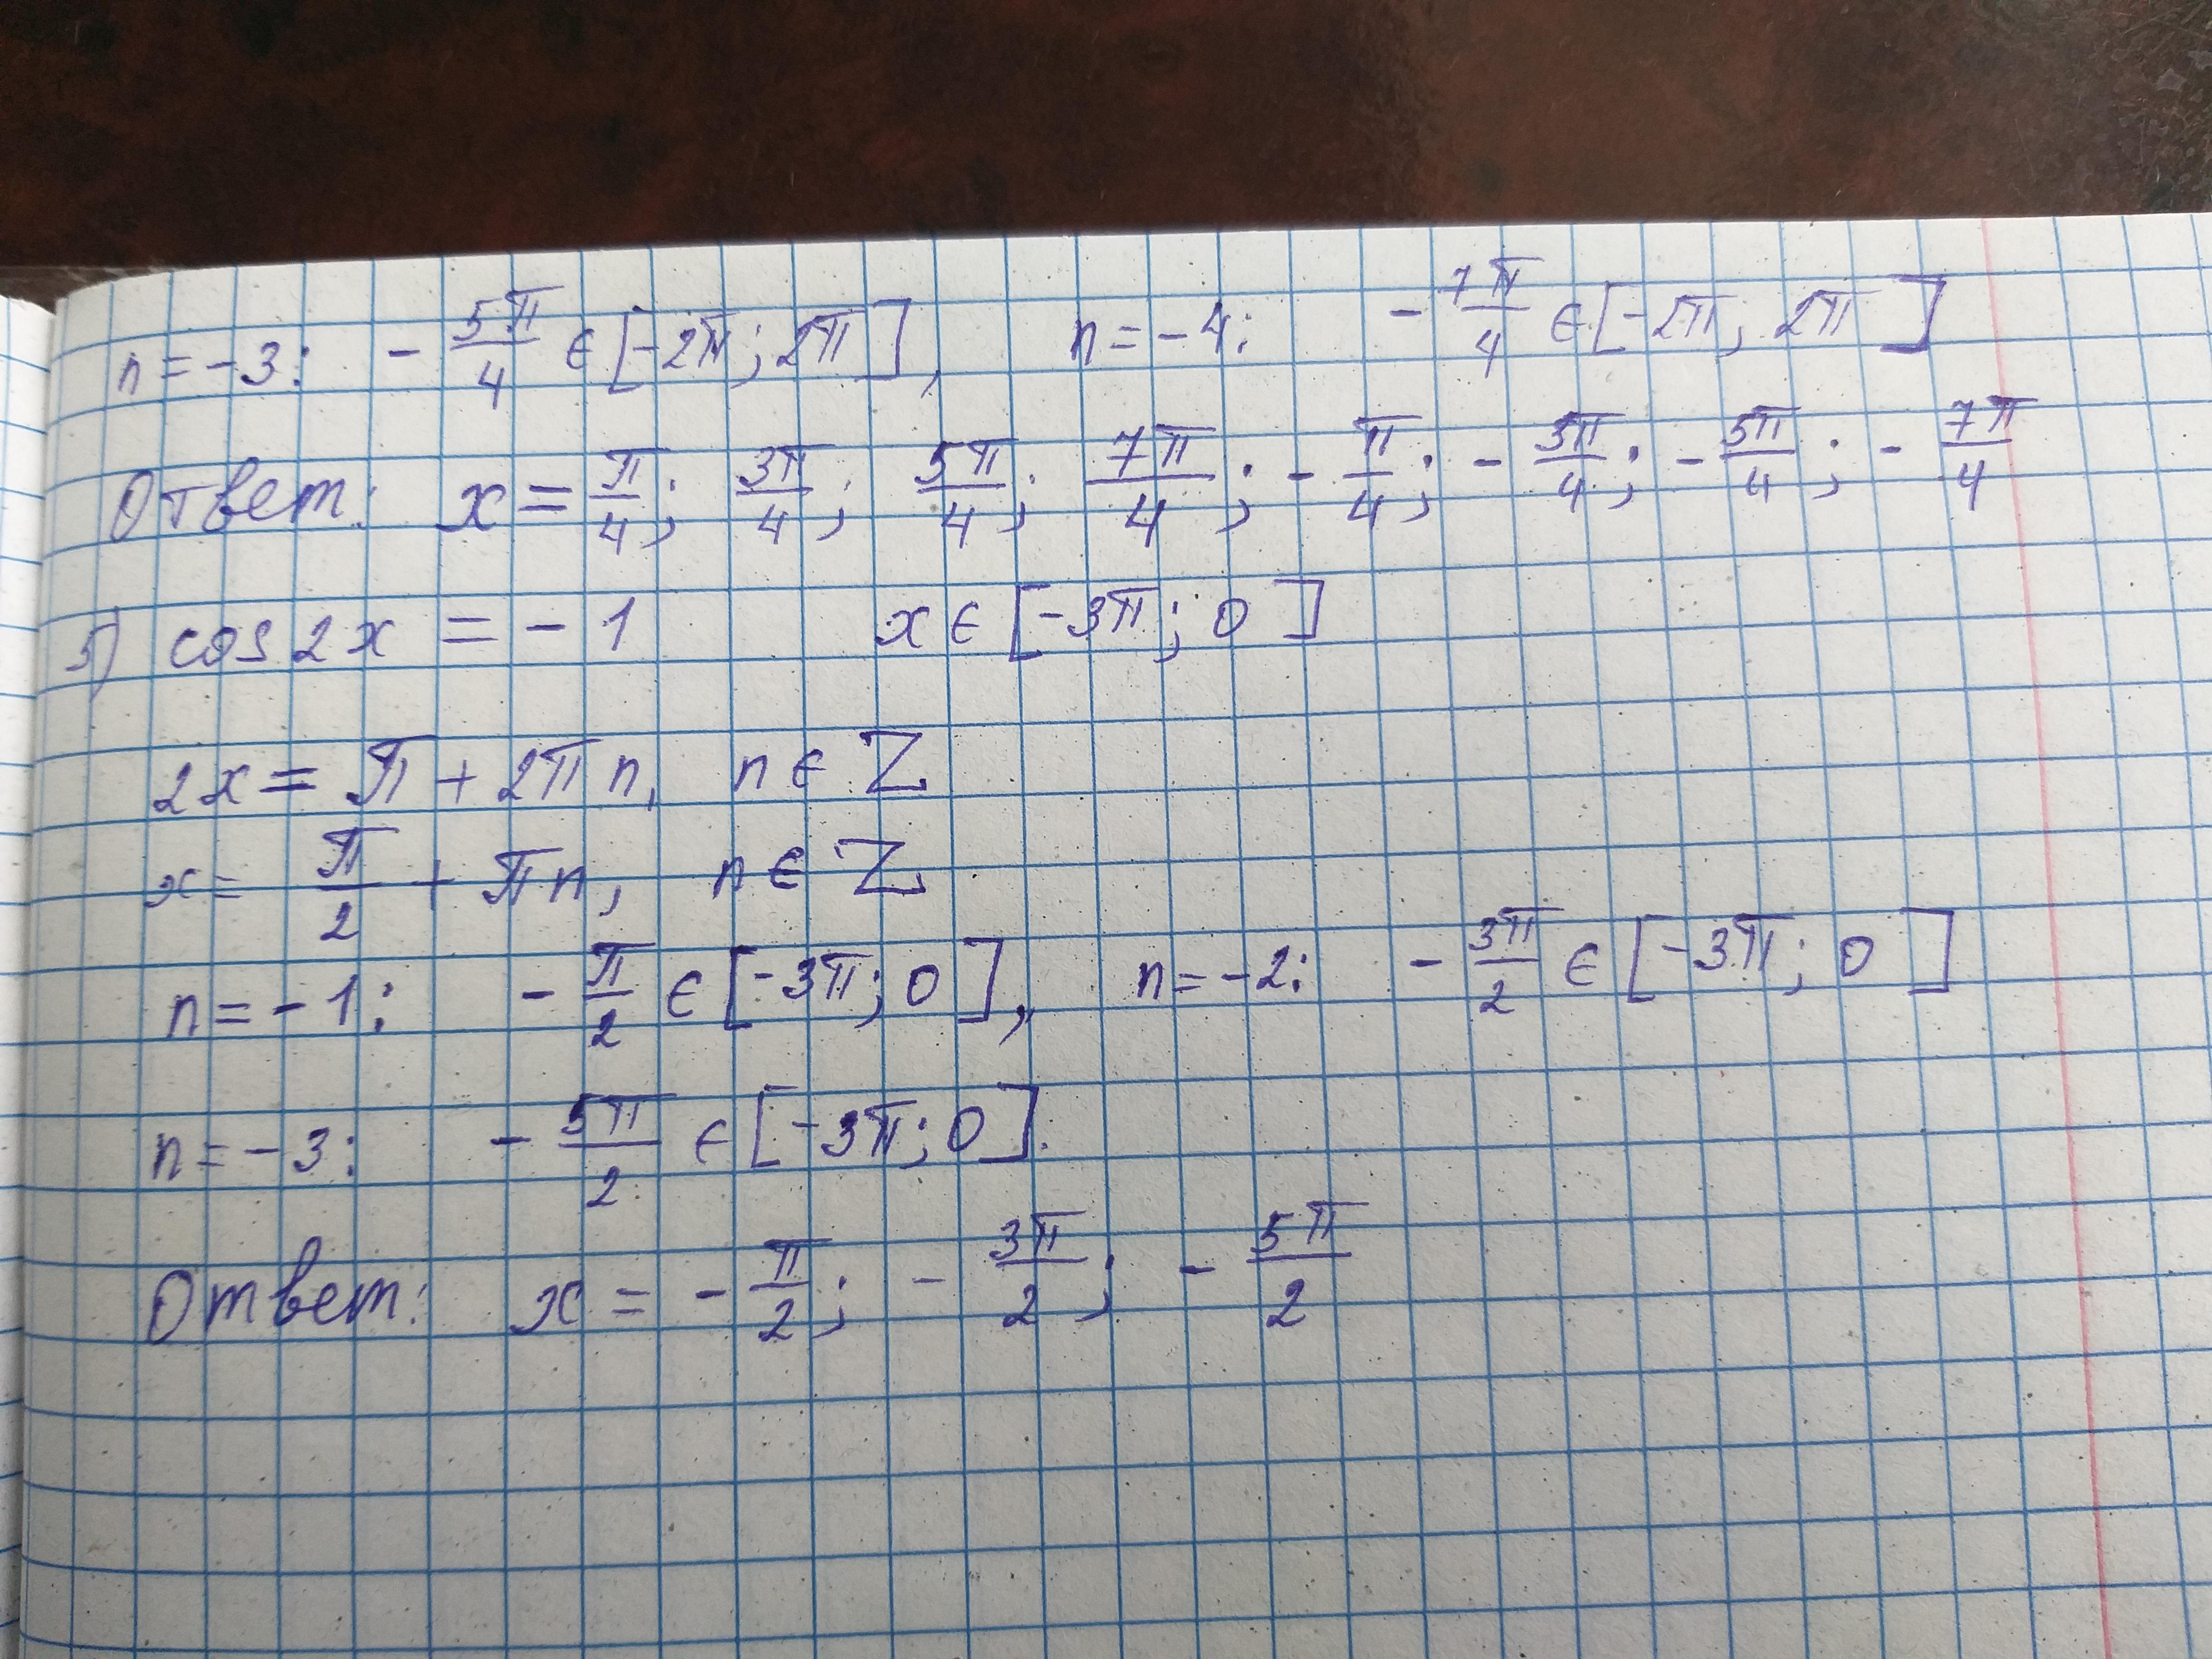 n = -3: - 5π/4 ∈ [-2π; 2π], n = -4: - 7π/4 ∈ [-2π; 2π]
Ответ: x = π/4; 3π/4; 5π/4; 7π/4; - π/4; - 3π/4; - 5π/4; - 7π/4
5) cos 2x = - 1 x ∈ [-3π; 0]
2x = π + 2πn, n ∈ Z
x = π/2 + πn, n ∈ Z
n = -1: - π/2 ∈ [-3π; 0], n = -2: - 3π/2 ∈ [-3π; 0]
n = -3: - 5π/2 ∈ [-3π; 0].
Ответ: x = - π/2; - 3π/2; - 5π/2